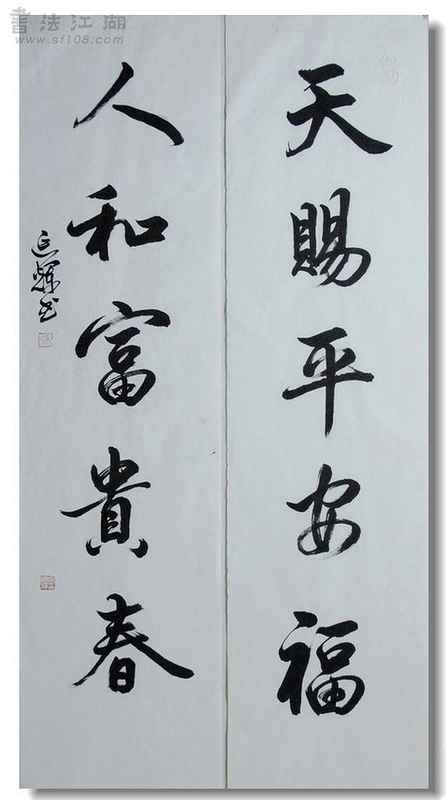 天賜平安福
人和富貴春
書法江湖
www.sf108.com